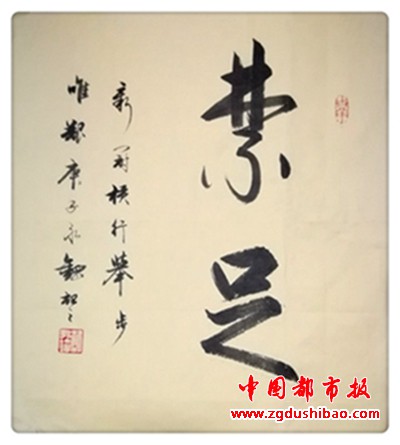 禁足
新冠横行舉步
唯艱庚子永
中国都市报
www.zgdushibao.com